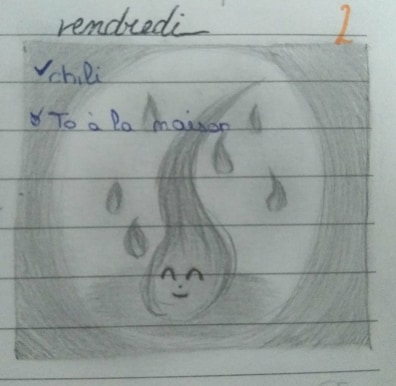 vendredi
2
✓ chili
x To à la maison